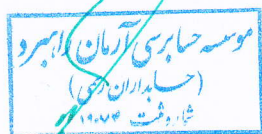 موسسه حسابرسی آرمان راهبرد
(حسابداران رسمی)
شماره ثبت ۱۹۰۷۴